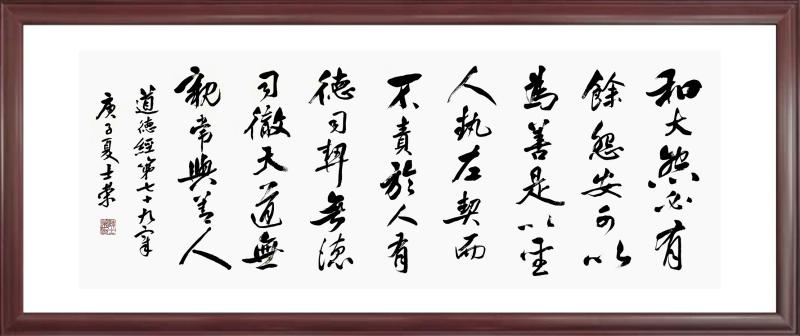 和大怨必有
餘怨安可以
為善是以聖
人執左契而
不責於人有
德司契無德
司徹天道無
親常與善人
道德經第七十九章
庚子夏士棠